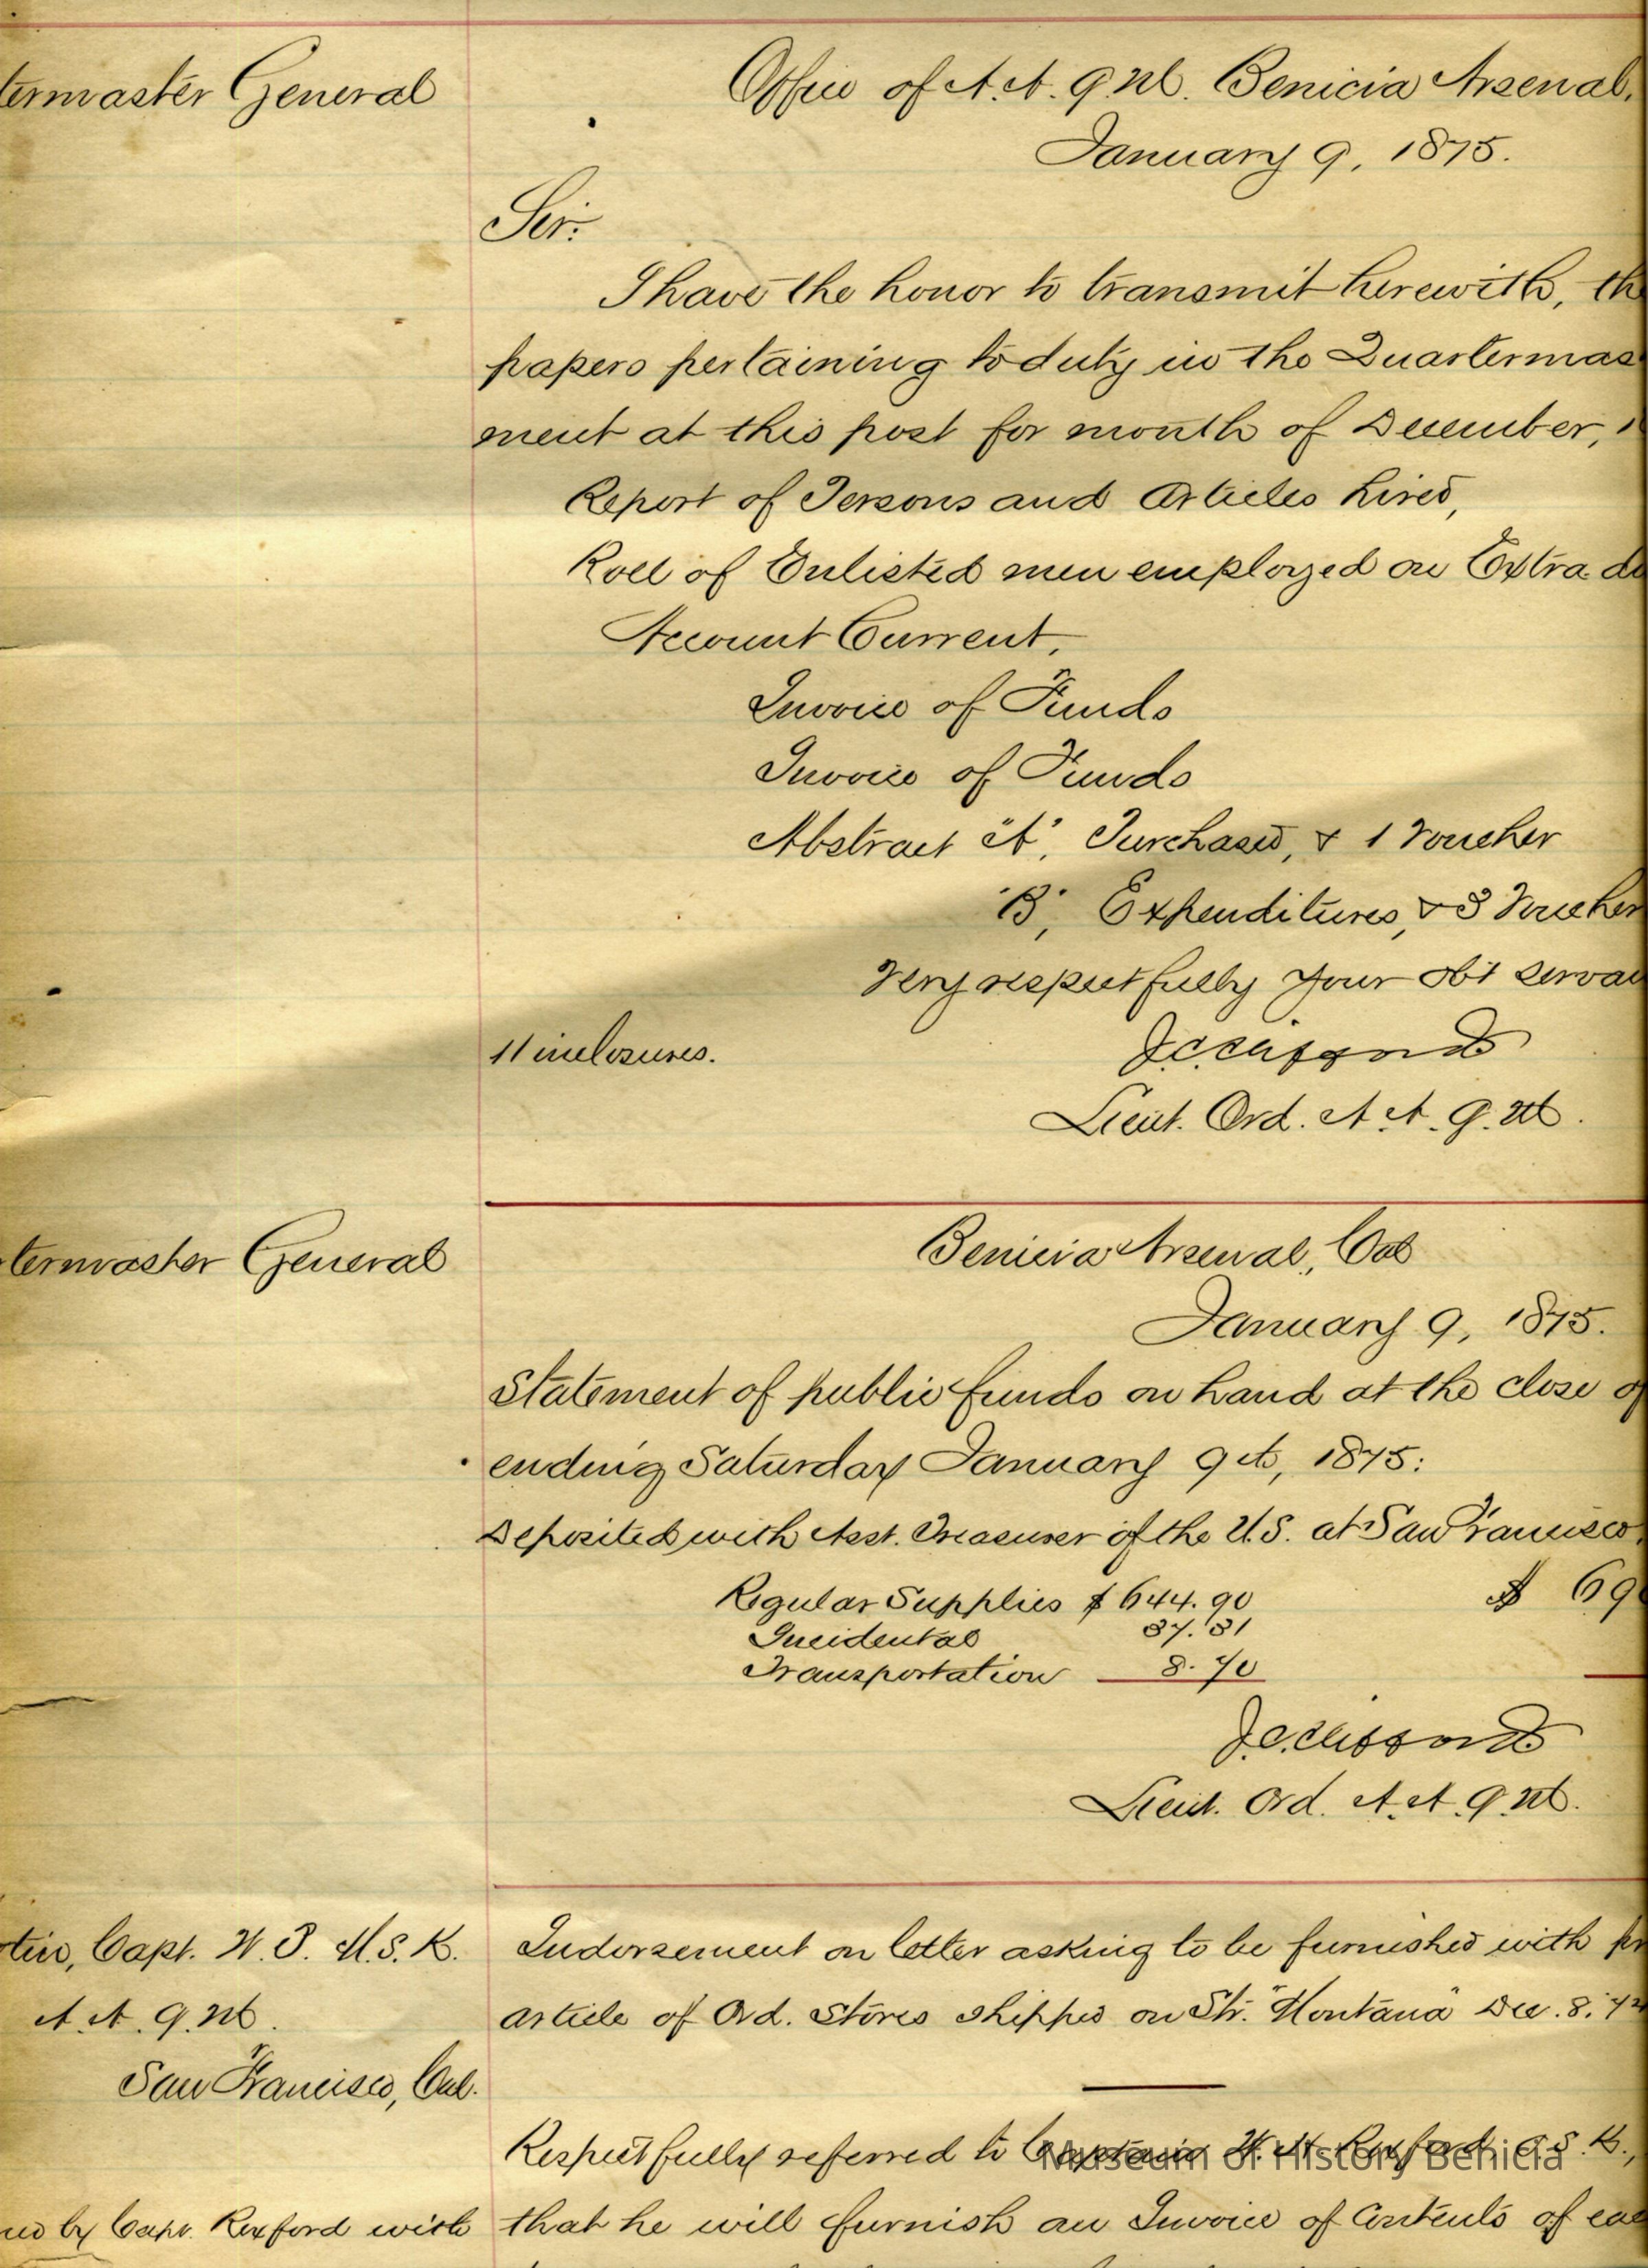 termaster General
Office of A. A. Q. M. Benicia Arsenal,
January 9, 1875.
Sir:
I have the honor to transmit herewith, th
papers pertaining to duty in the Quartermas
ment at this post for month of December,
Report of Persons and Articles hired,
Roll of Enlisted men employed on Extra du
Account Current,
Invoice of Funds
Invoice of Funds
Abstract "A", Purchased, & 1 Voucher
"B", Expenditures, & 3 Voucher
Very respectfully Your obt servan
11 inclosures.
J. C. Clifford
Lieut. Ord. A. A. Q. M.
termaster General
Benicia Arsenal, Cal
January 9, 1875.
Statement of public funds on hand at the close of
ending Saturday January 9th, 1875:
Deposited with Asst. Treasurer of the U.S. at San Francisco,
Regular Supplies $ 644.90
$ 69
Incidental 37.31
Transportation 8.70
J. C. Clifford
Lieut. Ord. A. A. Q. M.
Capt. M. S. K.
A. A. Q. M.
San Francisco, Cal.
Indorsement on letter asking to be furnished with pr
article of Ord. Stores shipped on Str. "Montana" Dec. 8,
Respectfully referred to Captain Rexford, O. S. K.,
ed by Capt. Rexford with
that he will furnish an Invoice of Contents of eac
Museum of History Benicia